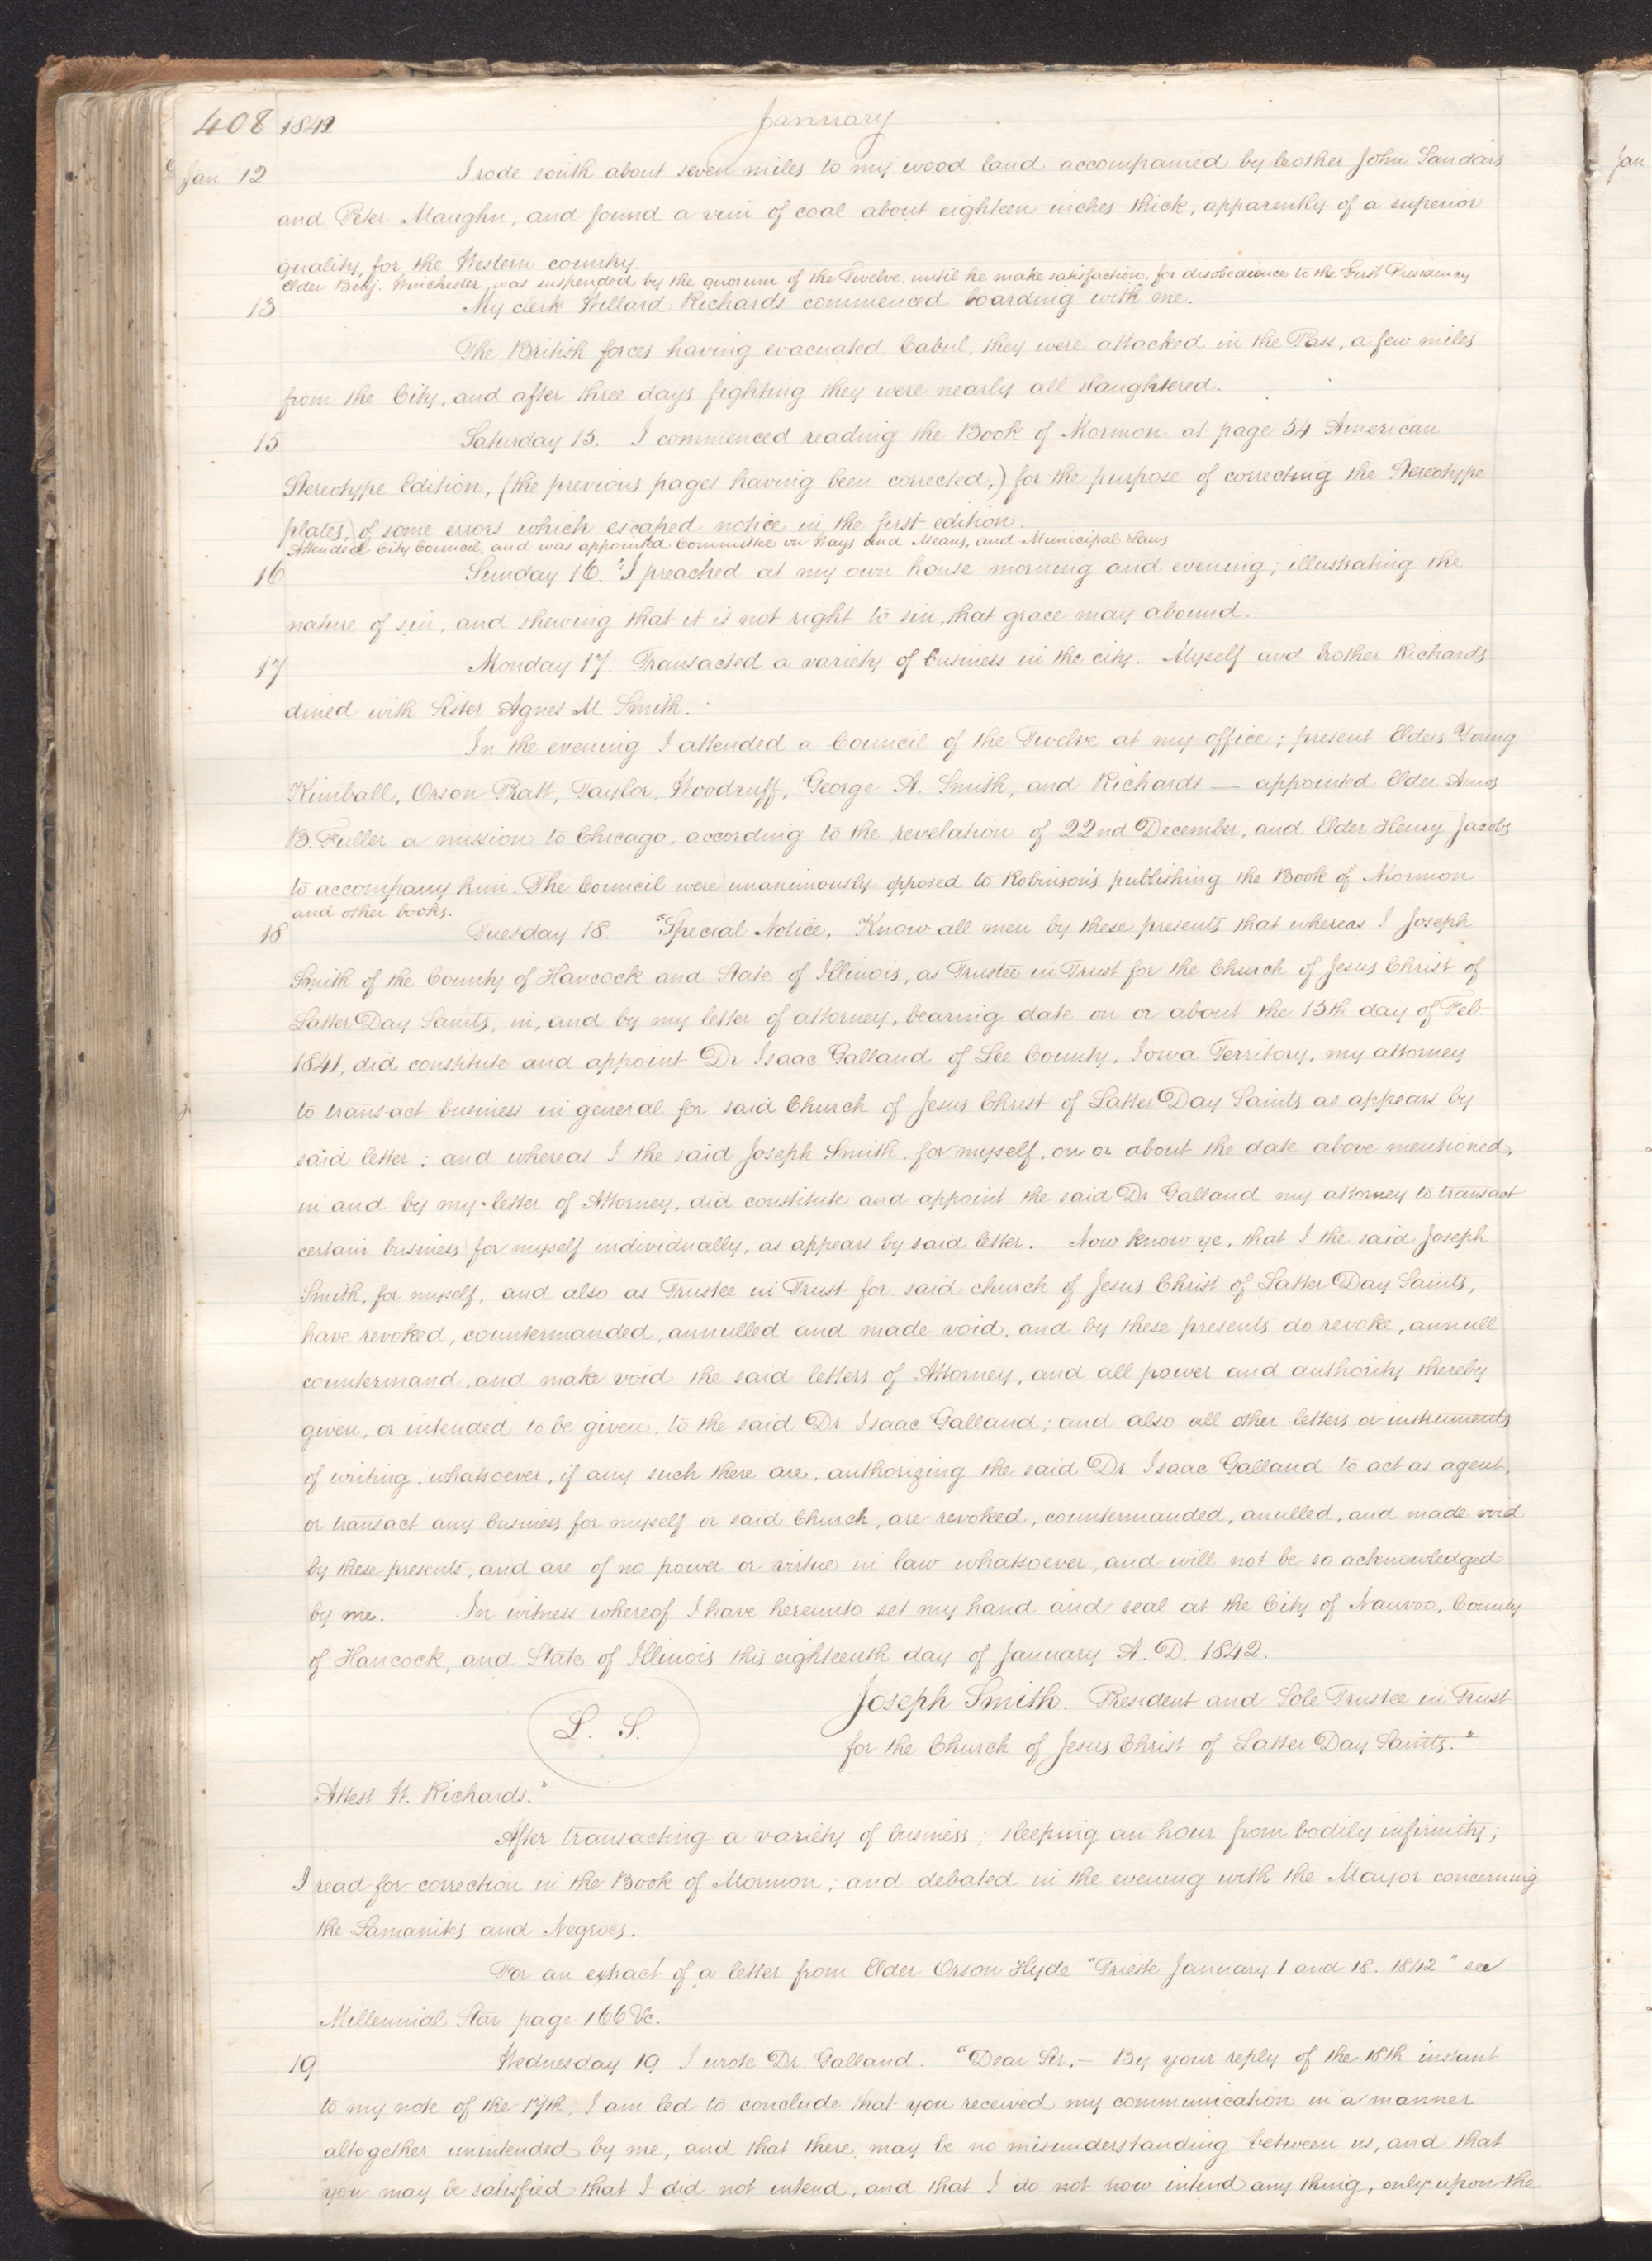 408 1842 January
Jan 12 I rode south about seven miles to my wood land accompanied by brother John Sanders
and Peter Maughn, and found a vein of coal about eighteen inches thick, apparently of a superior
quality, for the Western country.
Elder Benj. Winchester was suspended by the quorum of the Twelve until he make satisfaction, for disobedience to the First Presidency
13 My clerk Willard Richards commenced boarding with me.
The British forces having evacuated Cabul, they were attacked in the Pass, a few miles
from the City, and after three days fighting they were nearly all slaughtered.
15 Saturday 15. I commenced reading the Book of Mormon at page 54 American
Stereotype Edition, (the previous pages having been corrected,) for the purpose of correcting the Stereotype
plates, of some errors which escaped notice in the first edition.
Attended City Council, and was appointed Committee on Ways and Means, and Municipal Laws
16 Sunday 16. I preached at my own house morning and evening; illustrating the
nature of sin, and shewing that it is not right to sin, that grace may abound.
17 Monday 17. Transacted a variety of business in the city. Myself and brother Richards
dined with Sister Agnes M. Smith.
In the evening I attended a Council of the Twelve at my office; present Elders Young
Kimball, Orson Pratt, Taylor, Woodruff, George A. Smith, and Richards — appointed Elder Amos
B. Fuller a mission to Chicago, according to the revelation of 22nd December, and Elder Henry Jacobs
to accompany him. The Council were unanimously opposed to Robinson's publishing the Book of Mormon
and other books.
18 Tuesday 18. "Special Notice. Know all men by these presents that whereas I Joseph
Smith of the County of Hancock and State of Illinois, as Trustee in Trust for the Church of Jesus Christ of
Latter Day Saints, in, and by my letter of attorney, bearing date on or about the 15th day of Feb.
1841, did constitute and appoint Dr Isaac Galland of Lee County, Iowa Territory, my attorney
to transact business in general for said Church of Jesus Christ of Latter Day Saints as appears by
said letter; and whereas I the said Joseph Smith, for myself, on or about the date above mentioned,
in and by my letter of Attorney, did constitute and appoint the said Dr Galland my attorney to transact
certain business for myself individually, as appears by said letter. Now know ye, that I the said Joseph
Smith, for myself, and also as Trustee in Trust for said church of Jesus Christ of Latter Day Saints,
have revoked, countermanded, annulled and made void, and by these presents do revoke, annull
countermand, and make void the said letters of Attorney, and all power and authority thereby
given, or intended to be given, to the said Dr Isaac Galland; and also all other letters or instruments
of writing, whatsoever, if any such there are, authorizing the said Dr Isaac Galland to act as agent,
or transact any business for myself or said Church, are revoked, countermanded, anulled, and made void
by these presents, and are of no power or virtue in law whatsoever, and will not be so acknowledged
by me. In witness whereof I have hereunto set my hand and seal at the City of Nauvoo, County
of Hancock, and State of Illinois this eighteenth day of January A. D. 1842.
Joseph Smith. President and Sole Trustee in Trust
L. S.
for the Church of Jesus Christ of Latter Day Saints."
Attest W. Richards."
After transacting a variety of business; sleeping an hour from bodily infirmity;
I read for correction in the Book of Mormon, and debated in the evening with the Mayor concerning
the Lamanites and Negroes.
For an extract of a letter from Elder Orson Hyde "Trieste January 1 and 18. 1842" see
Millennial Star page 166 &c.
19 Wednesday 19 I wrote Dr. Galland. "Dear Sir,— By your reply of the 18th instant
to my note of the 17th, I am led to conclude that you received my communication in a manner
altogether unintended by me, and that there may be no misunderstanding between us, and that
you may be satisfied that I did not intend, and that I do not now intend any thing, only upon the
Jan